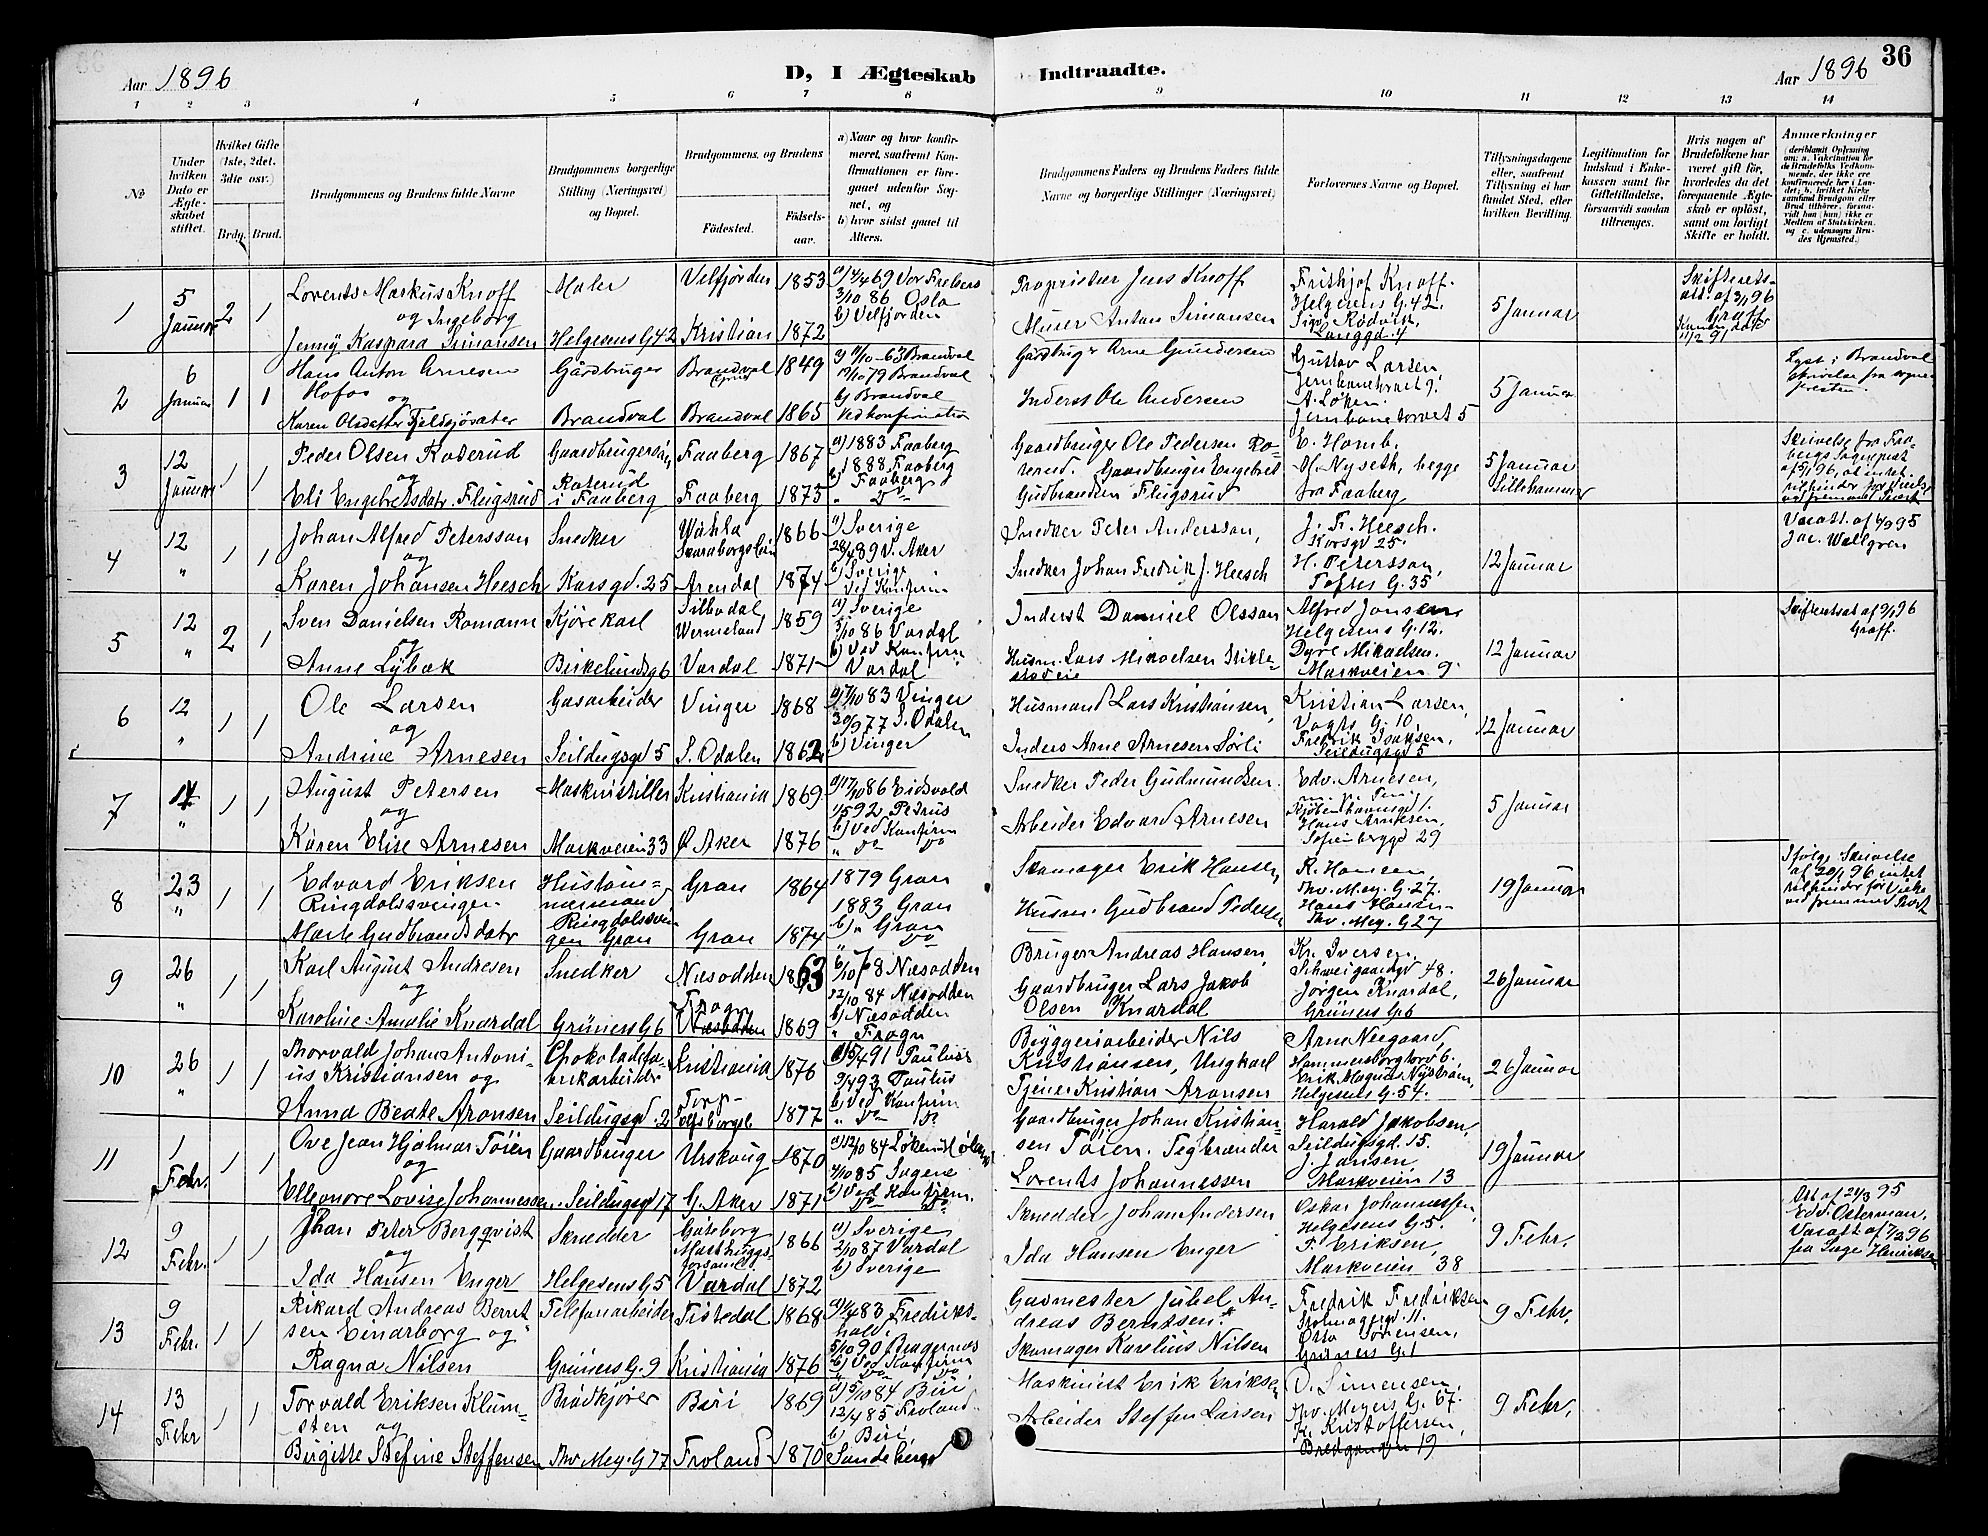 36
Aar 1896
D, I Ægteskab
Indtraadte.
Aar 1896
1 2 3 4 5 6 7 8 9 10 11 12 13 14
№
Under hvilken Dato er Ægteskabet stiftet.
Hvilket Gifte (1ste, 2det, 3die osv.)
Brdg. Brud.
Brudgommens og Brudens fulde Navne
Brudgommens borgerlige Stilling (Næringsvei) og Bopæl.
Brudgommens og Brudens
Fødested.
Fødselsaar.
a) Naar og hvor konfirmeret, saafremt Konfirmationen er foregaaet udenfor Sognet, og
b) hvor sidst gaaet til Alters.
Brudgommens Faders og Brudens Faders fulde Navne og borgerlige Stillinger (Næringsvei)
Forlovernes Navne og Bopæl.
Tillysningsdagene eller, saafremt Tillysning ei har fundet Sted, efter hvilken Bevilling.
Legitimation for Indskud i Enkekassen samt for Giftetilladelse, forsaavidt saadan tiltrænges.
Hvis nogen af Brudefolkene har været gift før, hvorledes da det foregaaende Ægteskab er opløst, samt om lovligt Skifte er holdt.
Anmærkninger
1
5 Januar
2 1
Lorents Markus Knoff
og Ingeborg
Jenny Kaspara Simonsen
Maler
Helgesens G 42
Velfjorden 1853
Kristian 1872
3/10 86 Oslo
b) Velfjorden
Proprietær Jens Knoff
Murer Anton Simonsen
Frithjof Knoff.
Helgesens G. 42.
5 Januar
2
6 Januar
1 1
Hans Anton Arnesen
Hofos og
Karen Olsdatter
Gårdbruger
Brandval
Brandval 1849
Brandval 1865
Brandval
b) Brandval
Ved konfirmation
Gårdbrugr Arne Gundersen
Inderst Ole Andersen
Gustav Larsen
Jernbanetorvet 9.
A. Løken
Jernbanetorvet 5
5 Januar
Lyst i Brandval
3
12 Januar
1 1
Peder Olsen Roterud
og
Eli Engebretsdatr. Flugsrud
Gaardbrugersøn
Roterud
i Faaberg
Faaberg 1867
Faaberg 1875
a) 1883 Faaberg
1888 Faaberg
b) Faaberg
Gaardbruger Ole Pedersen Roterud. Gaardbruger Engebret
Gudbrandsen Flugsrud
M. Nyseth, begge
fra Faaberg
5 Januar
Lillehammer
4
12 "
1 1
Johan Alfred Petersson
og
Karen Johansen Heesch
Snedker
Korsgd. 25
Skaraborgslän 1866
Arendal 1874
a) Sverige
28/4 89 V. Aker
b) Sverige
Ved Konfirm
Snedker Peter Andersson,
Snedker Johan Fredrik J. Heesch
J. Fr. Heesch.
Korsgd 25.
H. Petersson,
Toftes G. 35
12 Januar
Jac. Wallgren
5
12 "
2 1
Sven Danielsen Romann
og
Anne Lybæk
Kjørekarl
Birkelundsg 6
Silbodal
Wermeland 1859
Vardal 1871
a) Sverige
3/10 86 Vardal
b) Ved Konfirm
Vardal
Inderst Daniel Olsson
Husm. Lars Mikaelsen
Alfred Jansen
Helgesens G. 12.
Dyre Mikaelsen.
Markveien 9
12 Januar
Graff.
6
12 "
1 1
Ole Larsen
og
Andrine Arnesen
Gasarbeider
Seildugsgd 5
Vinger 1868
S. Odalen 1862
a) 7/10 83 Vinger
30/9 77 S. Odalen
b) Vinger
Husmand Lars Kristiansen,
Inders Arne Arnesen Sørli
Kristian Larsen,
Vogts G. 10.
Fredrik Isaksen,
Seildugsgd 5
12 Januar
7
1 1
August Petersen
og
Karen Elise Arnesen
Maskinstiller
Markveien 33
Kristiania 1869
Ø Aker 1876
a) 17/10 86 Eidsvold
1/5 92 Petrus
b) Ved Konfirm
Snedker Peder Gudmundsen.
Arbeider Edvard Arnesen
Edv. Arnesen,
Kjøbenhavnsgd 1.
Hans Arnesen,
Sofienberggd 29
5 Januar
8
23 "
1 1
Edvard Eriksen
Ringdalssvengen
og
Marte Gudbrandsdatr
Hustømmermand
Ringdalssvengen Gran
Gran 1864
Gran 1874
1879 Gran
1883 Gran
b) " Gran
Skomager Erik Hansen,
Husm. Gudbrand Pedersen
R. Hansen,
Thv. Mey. G. 27.
Hans Hansen
Thv. Mey. G 27
19 Januar
Ifølge Skrivelse
9
26 "
1 1
Karl August Andresen
og
Karoline Amalie Knardal
Snedker
Grüners G 6
Næsodden 1863
Frogn
Næsodden 1869
6/10 78 Næsodden
12/10 84 Næsodden
b) Næsodden
" Frogn
Bruger Andreas Hansen,
Gaardbruger Lars Jakob
Olsen Knardal
Kr. Iversen
Schweigaardsgd 48.
Jørgen Knardal,
Grüners G. 6
26 Januar
10
26 "
1 1
Thorvald Johan Antonius Kristiansen og
Anna Beate Aronsen
Chokoladefabrikarbeider
Seildugsgd. 2
Kristiania 1876
1877
a) 5/4 91 Paulus
9/4 93 Paulus
b) Ved Konfirm
Bryggeriarbeider Nils
Kristiansen, Ungkarl
Tjener Kristian Aronsen
Arne Neegaard,
Hammersborgtorv 6.
Erik Magnus Nystrøm,
Helgesens G. 54.
26 Januar
11
1 Febr.
1 1
Ove Jean Hjalmar Tøien
og
Elleonore Lovise Johannessen
Gaardbruger
Seildugsgd 17
Urskoug 1870
G. Aker 1871
a) 12/10 84 Løken i Høland
4/10 85 Sagene
b) Ved Konfirm.
Gaardbruger Johan Kristiansen Tøien. Teglbrænder
Lorents Johannessen
Harald Jakobsen,
Seildugsgd. 15.
J. Jansen,
Markveien 13
19 Januar
12
9 Febr.
1 1
Johan Peter Bergqvist
og
Ida Hansen Enger
Skrædder
Helgesens G 5
Göteborg 1866
Vardal 1872
a) Sverige
2/10 87 Vardal
b) Sverige
Skrædder Johan Andersen
Ida Hansen Enger
Oskar Johannessen,
Helgesens G. 5.
P. Eriksen,
Markveien 38
9 Febr.
Edv. Osterman.
13
9 Febr.
1 1
Rikard Andreas Berntsen Einarborg og
Ragna Nilsen
Telefonarbeider
Grüners G. 9
Tistedal 1868
Kristiania 1876
Fredrikshald.
5/10 90 Bragernes
b) Ved Konfirm
Gasmester Juhel Andreas Berntsen.
Skomager Karelius Nilsen
Fredrik Fredriksen
Otto Sørensen,
Grüners G. 1
9 Febr,
14
13 Febr
1 1
Torvald Eriksen Klumsten og
Birgitte Stefine Steffensen
Brødkjører
Thv Mey. G 77
Biri 1869
Froland 1870
a) 5/10 84 Biri
12/4 85 Froland
b) Biri,
Sandeherred
Maskinist Erik Eriksen
Arbeider Steffen Larsen
O. Simensen,
Thv. Meyers G. 67.
K. Kristoffersen,
Bredgangen 19
9 Febr,